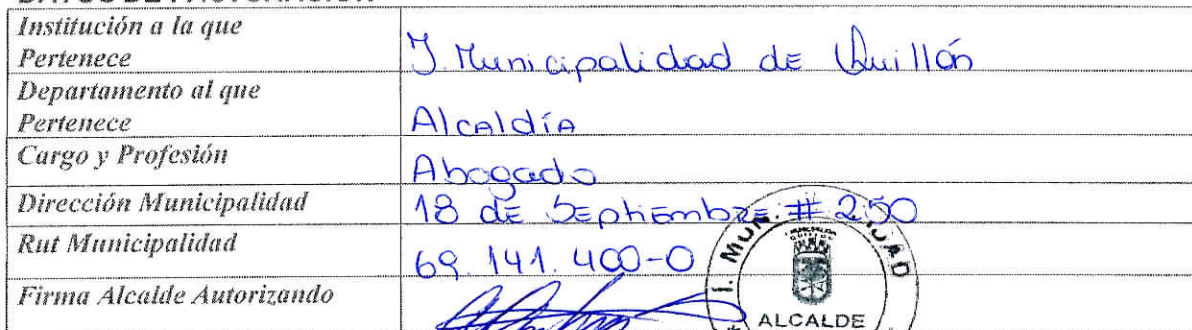 Institución a la que
Pertenece
I. Municipalidad de Quillón
Departamento al que
Pertenece
Alcaldía
Cargo y Profesión
Abogado
Dirección Municipalidad
18 de Septiembre # 250
Rut Municipalidad
69.141.400-0
Firma Alcalde Autorizando
ALCALDE